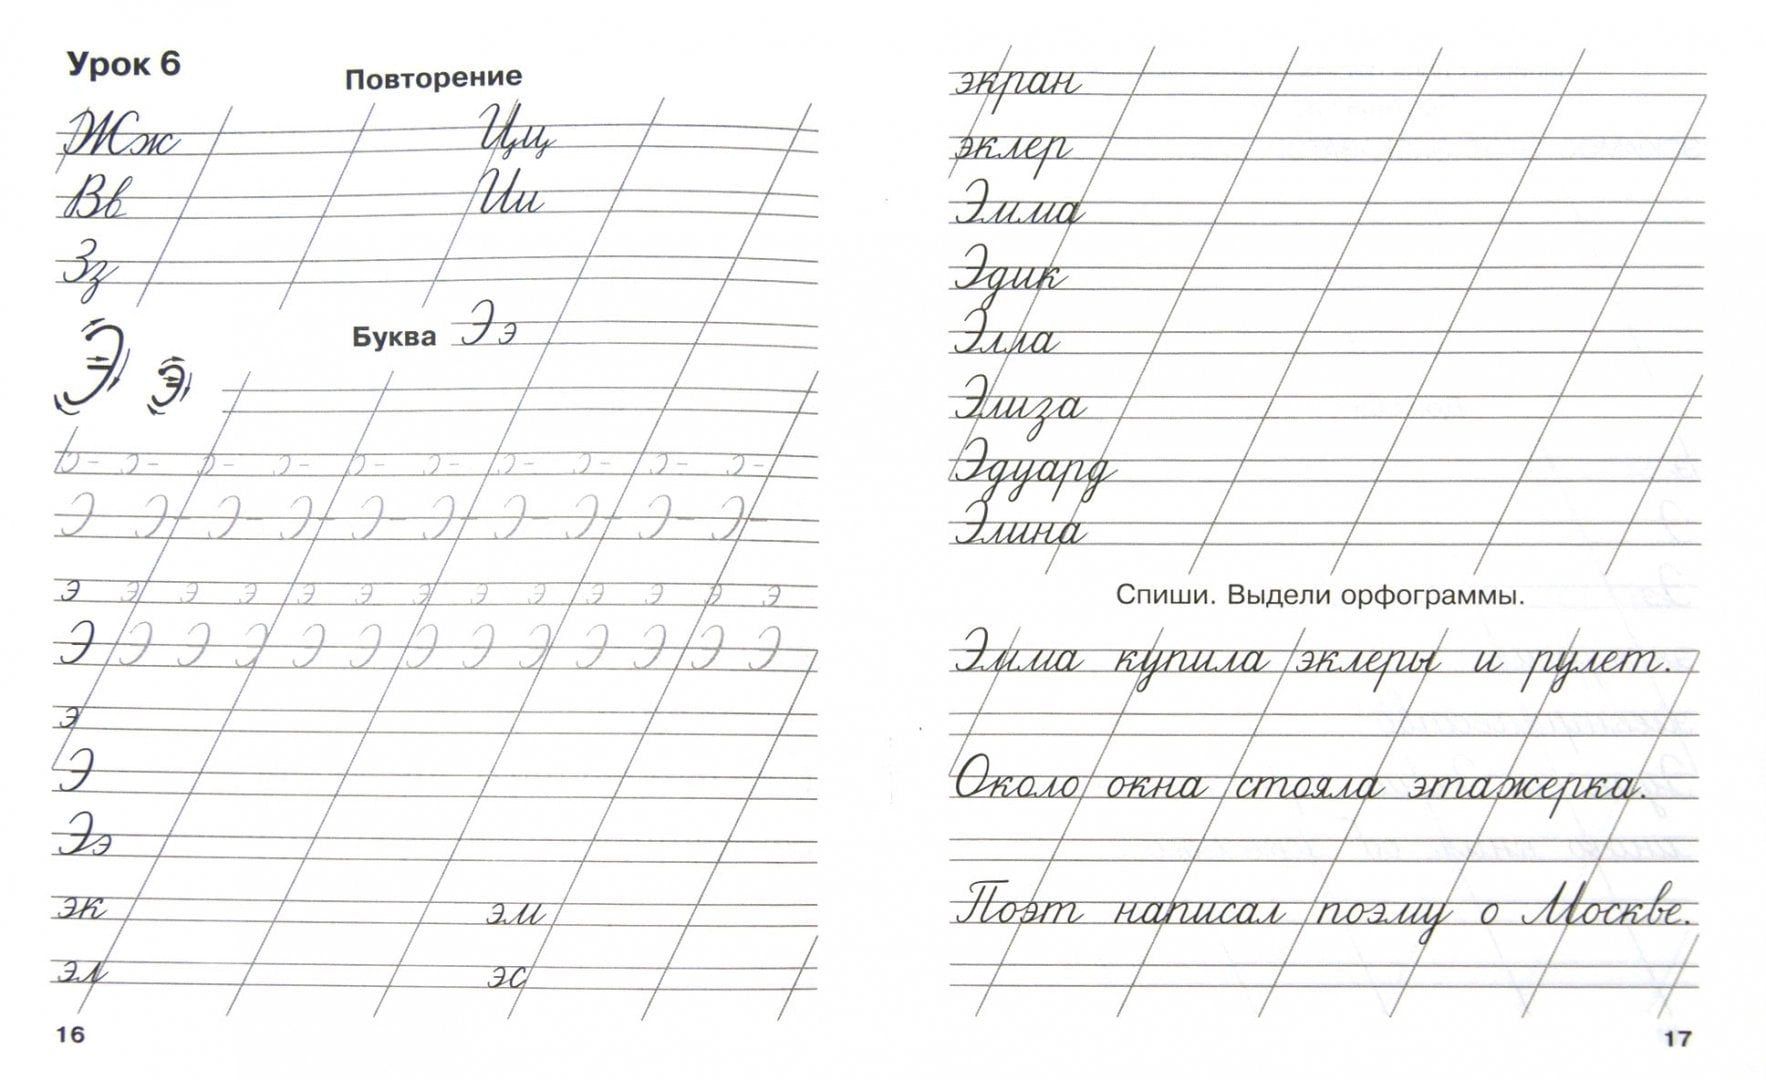 Урок 6
Повторение
Жж Цц
Вв Ии
Зз
Буква Ээ
Э э
э - э - э - э - э - э - э - э - э - э -
Э Э - Э - Э - Э - Э - Э - Э - Э - Э -
э э э э э э э э э э э э э
Э Э Э Э Э Э Э Э Э Э Э Э Э
э
Э
Ээ
эк эм
эл эс
16
экран
эклер
Эмма
Эдик
Элла
Элиза
Эдуард
Элина
Спиши. Выдели орфограммы.
Эмма купила эклеры и рулет.
Около окна стояла этажерка.
Поэт написал поэму о Москве.
17